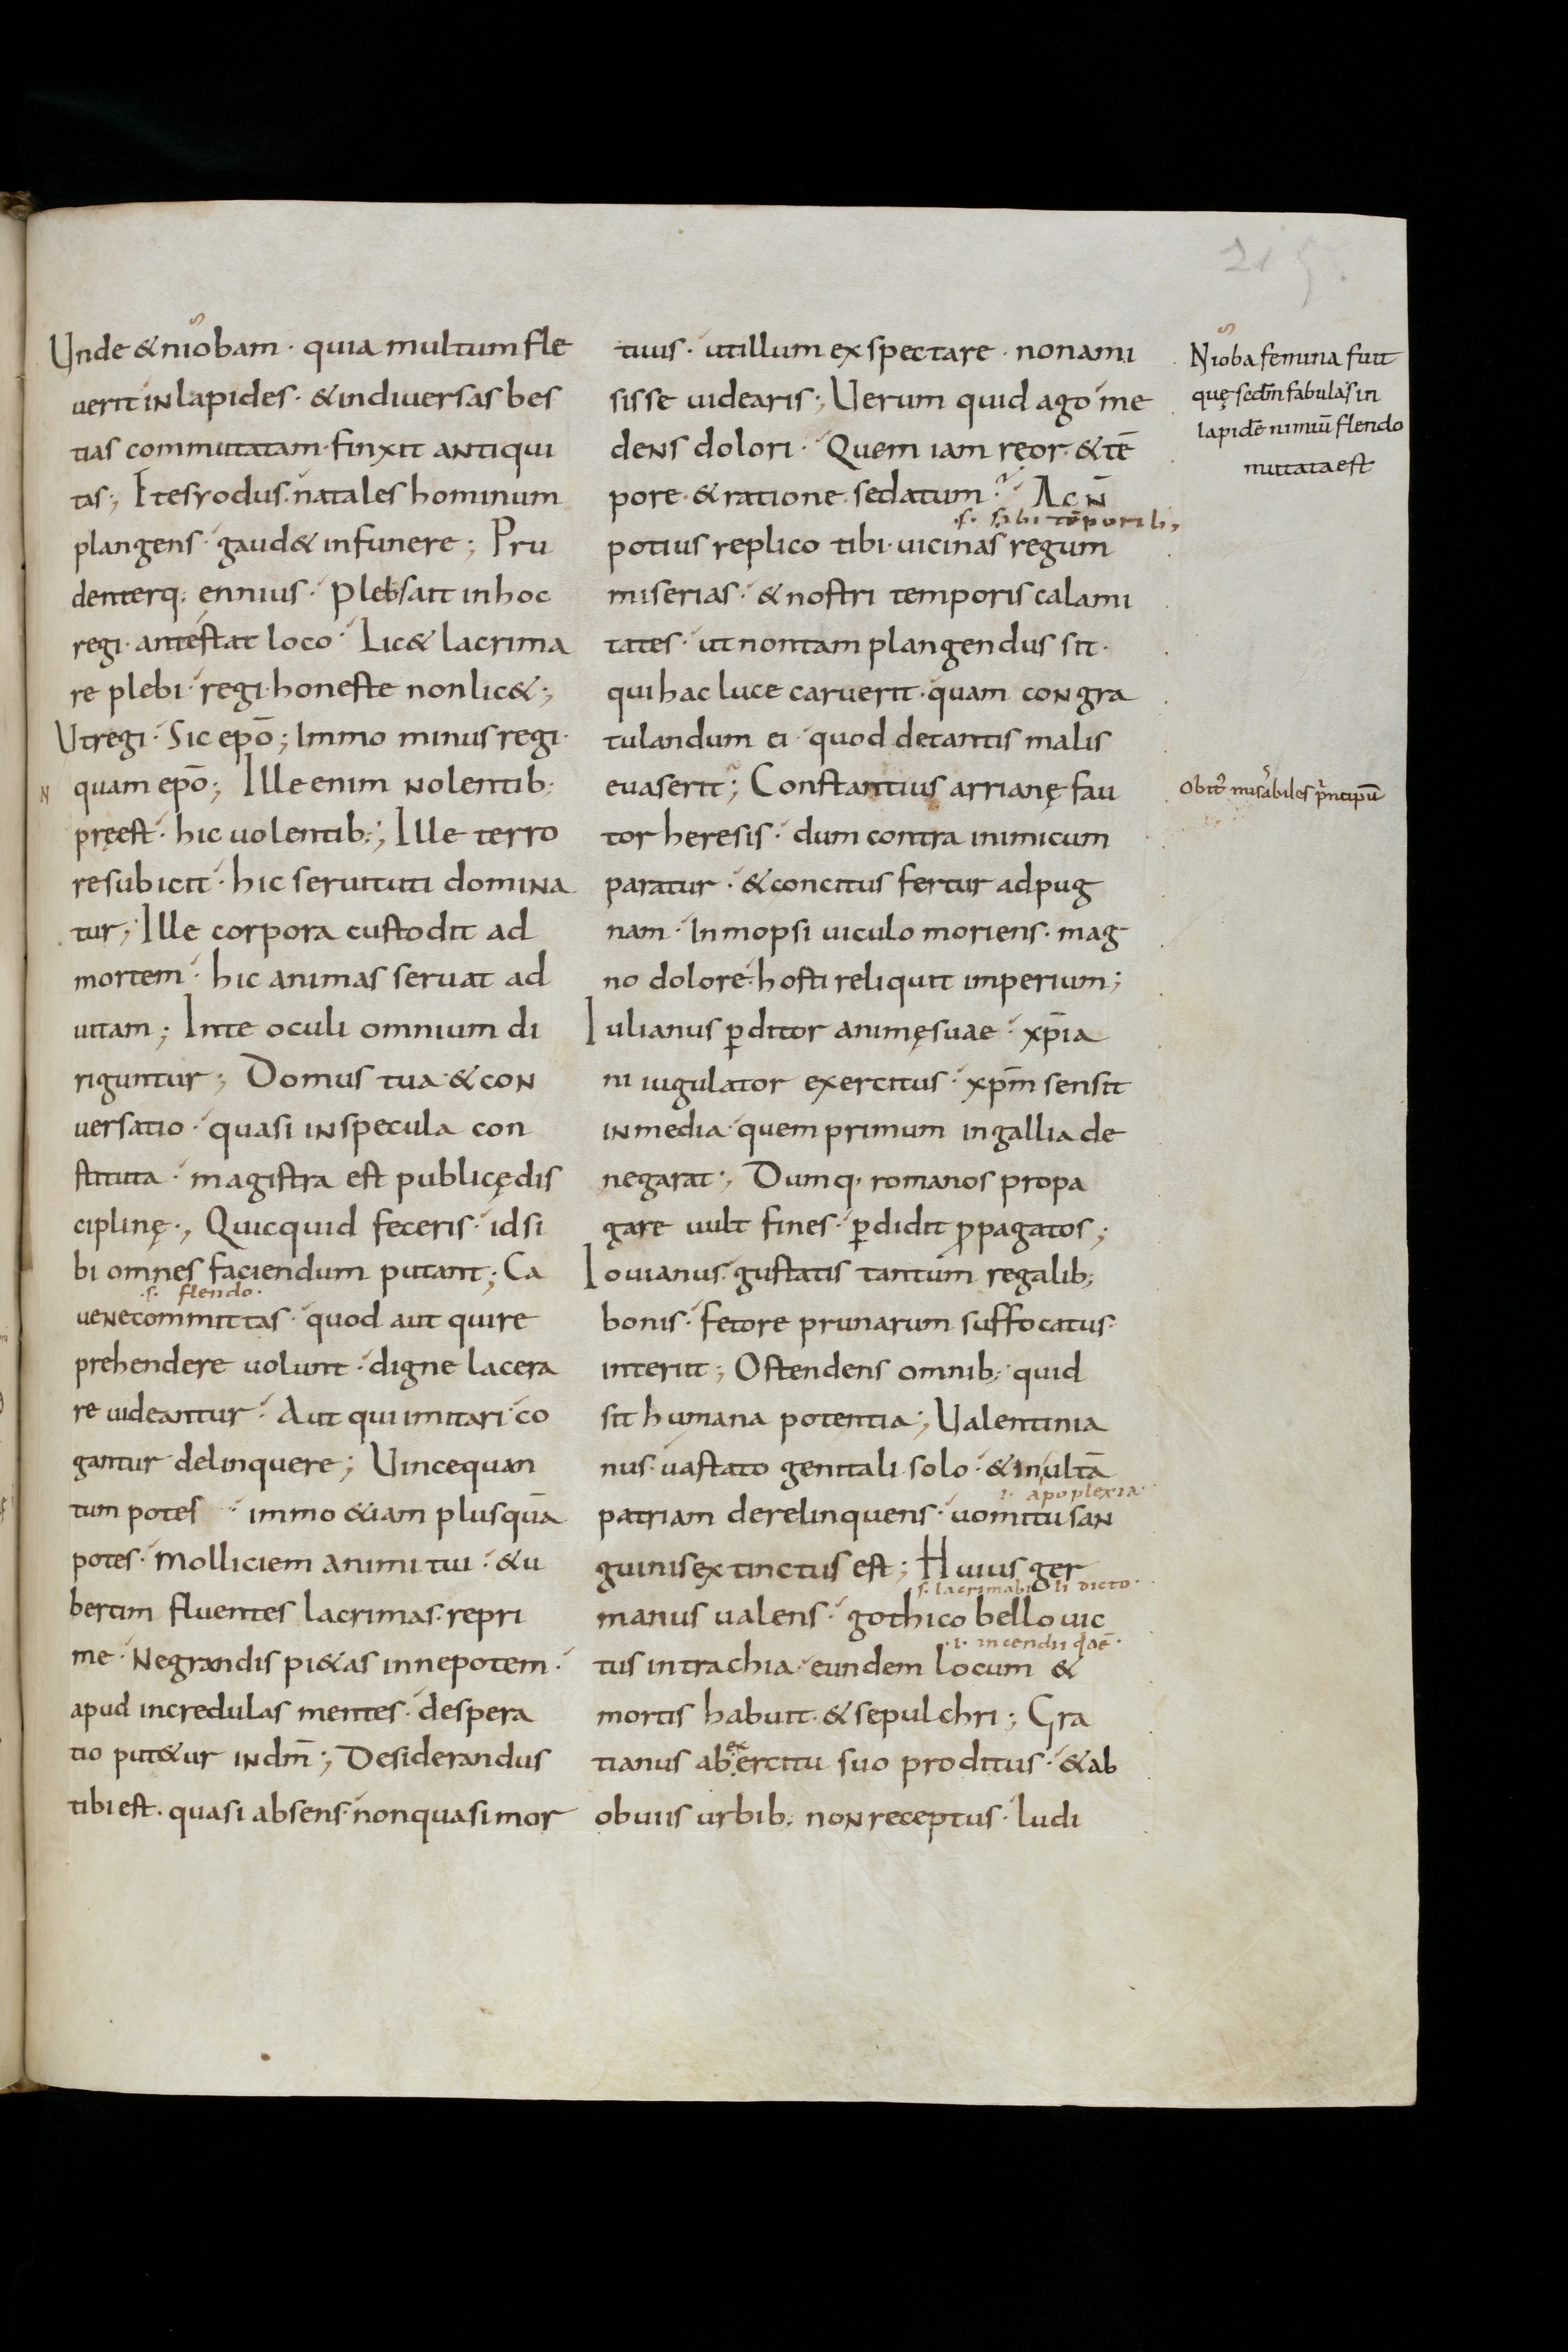 Unde & niobam · quia multum fle
uerit in lapides · & in diuersas bes
tias commutatam · finxit antiqui
tas ; Et esyodus · natales hominum
plangens · gaud& in funere ; Pru
denterq: ennius · plebs ait in hoc
regi · antestat loco · Lic& lacrima
re plebi · regi honeste non lic& ;
Ut regi · Sic ep̄o ; Immo minus regi ·
quam ep̄o ; Ille enim nolentib;
pręest · hic uolentib; ; Ille terro
re subicit · hic seruituti domina
tur ; Ille corpora custodit ad
mortem · hic animas seruat ad
uitam ; In te oculi omnium di
riguntur ; Domus tua & con
uersatio · quasi in specula con
stituta · magistra est publicę dis
ciplinę ; Quicquid feceris · id si
bi omnes faciendum putant ; Ca
·s· flendo·
ue ne committas · quod aut qui re
prehendere uolunt · digne lacera
re uideantur · Aut qui imitari co
gantur delinquere ; Uince quan
tum potes · immo &iam plus quā
potes · molliciem animi tui · & u
bertim fluentes lacrimas repri
me · Ne grandis pi&as in nepotem ·
apud incredulas mentes · despera
tio put&ur in dm̄ ; Desiderandus
tibi est · quasi absens · non quasi mor
tuus · ut illum exspectare · non ami
sisse uidearis ; Uerum quid ago me
dens dolori · Quem iam reor · & tē
pore · & ratione sedatum · Ac n̄
·s· sibi tēporib;
potius replico tibi · uicinas regum
miserias · & nostri temporis calami
tates · ut non tam plangendus sit ·
qui hac luce caruerit · quam congra
tulandum ei · quod de tantis malis
euaserit ; Constantius arrianę fau
tor heresis · dum contra inimicum
paratur · & concitus fertur ad pug
nam · In mopsi uiculo moriens · mag
no dolore hosti reliquit imperium ;
Iulianus p̱ditor animę suae · xp̄ia
ni iugulator exercitus · xpm̄ sensit
in media · quem primum in gallia de
negarat ; Dumq· romanos propa
gare uult fines · p̱didit ꝓpagatos ;
Iouianus · gustatis tantum regalib;
bonis · fetore prunarum suffocatus ·
interiit ; Ostendens omnib; quid
sit humana potentia ; Ualentinia
nus · uastato genitali solo · & inultā
·i· apoplexia·
patriam derelinquens · uomitu san
guinis extinctus est ; Huius ger
·s· lacrimabili dicto·
manus ualens · gothico bello uic
·i· incendii
tus in trachia · eundem locum &
mortis habuit · & sepulchri ; Gra
ex
tianus ab ercitu suo proditus · & ab
obuiis urbib; non receptus · ludi
Nioba femina fuit
quę secdm̄ fabulas in
lapidē nimiū flendo
mutata est
Obit᷒ mis᷒abiles p᷒ncipū
N
215.